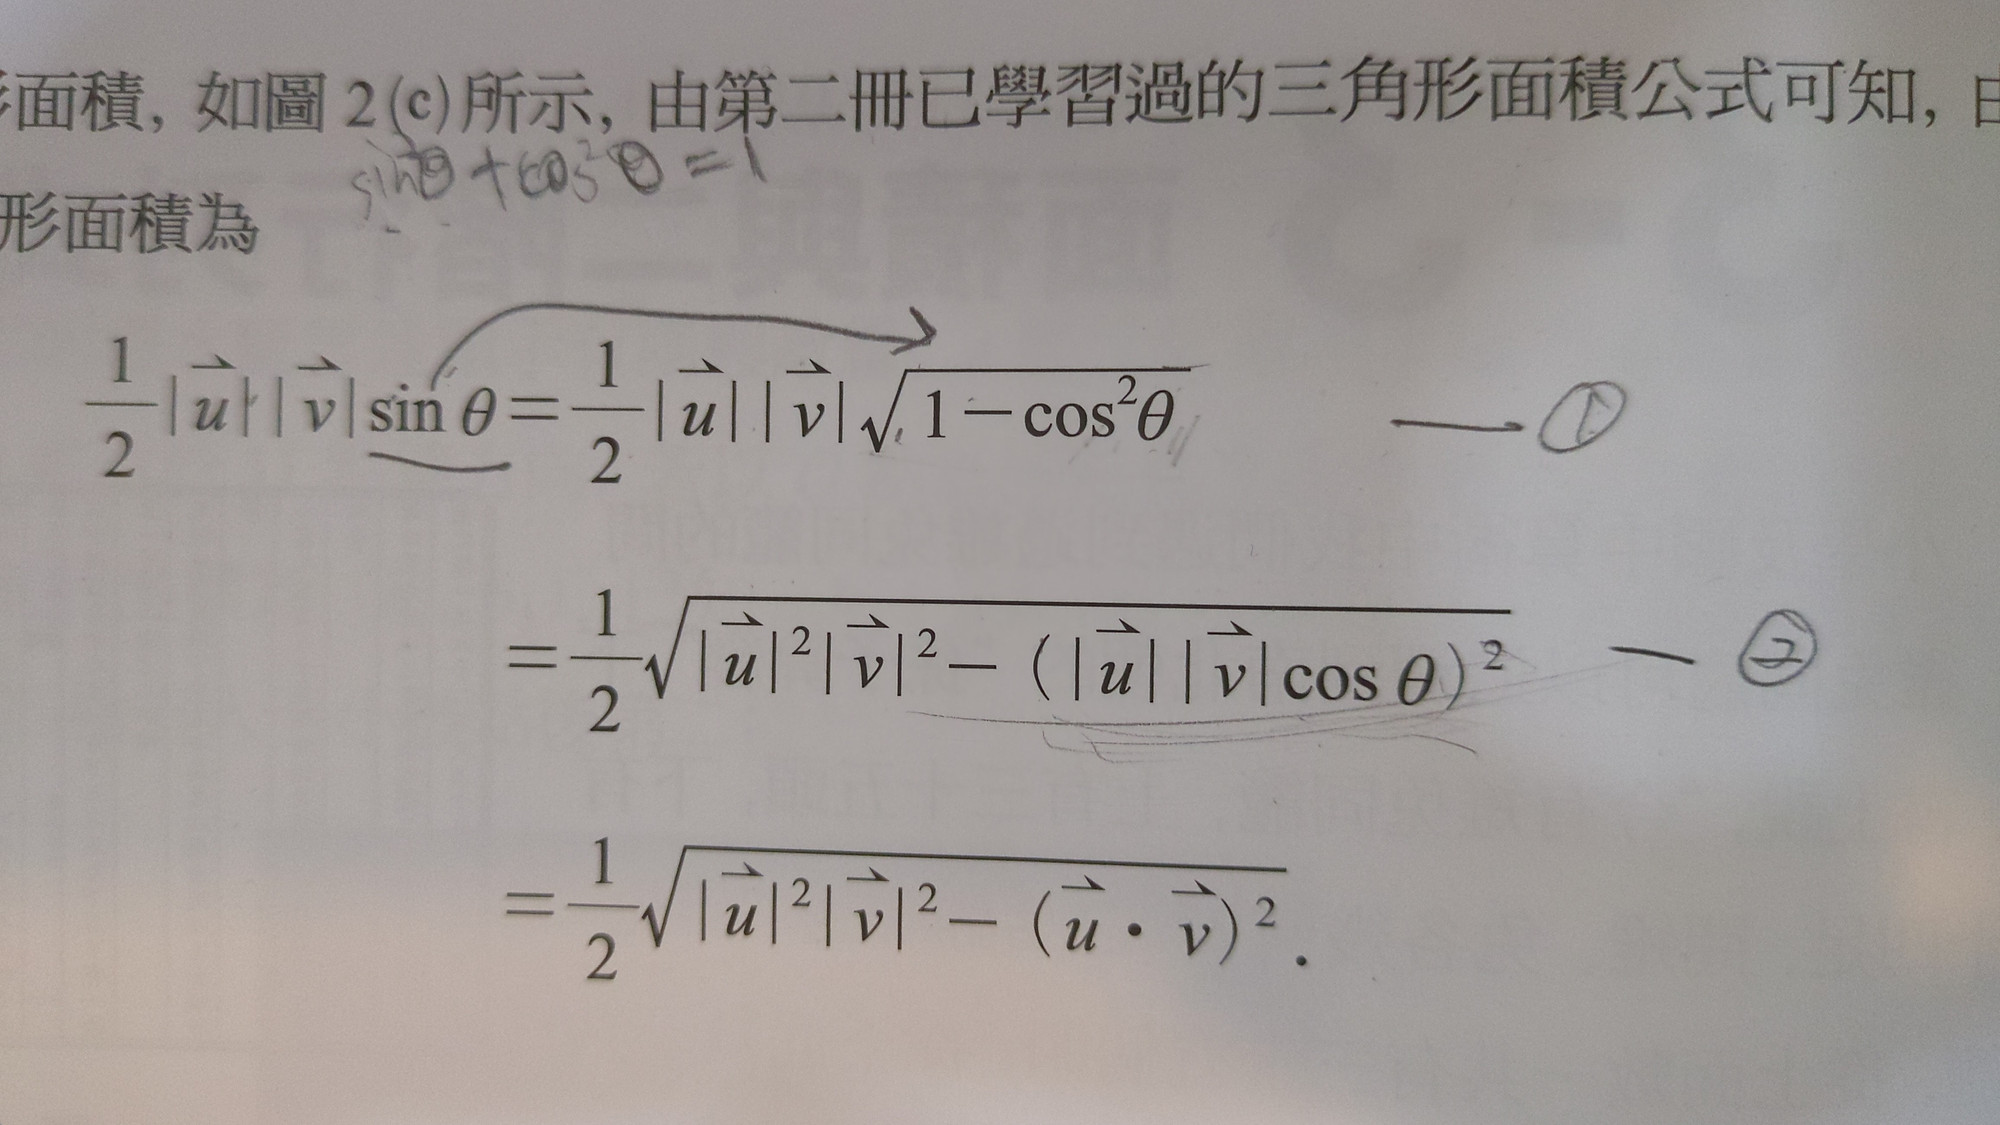 面積, 如圖 2(c)所示, 由第二冊已學習過的三角形面積公式可知, 由
sin²θ + cos²θ = 1
形面積為
1/2 |u⃑||v⃑| sin θ = 1/2 |u⃑||v⃑| √(1－cos²θ) — ①
= 1/2 √(|u⃑|²|v⃑|²－(|u⃑||v⃑|cos θ)²) — ②
= 1/2 √(|u⃑|²|v⃑|²－(u⃑・v⃑)²).